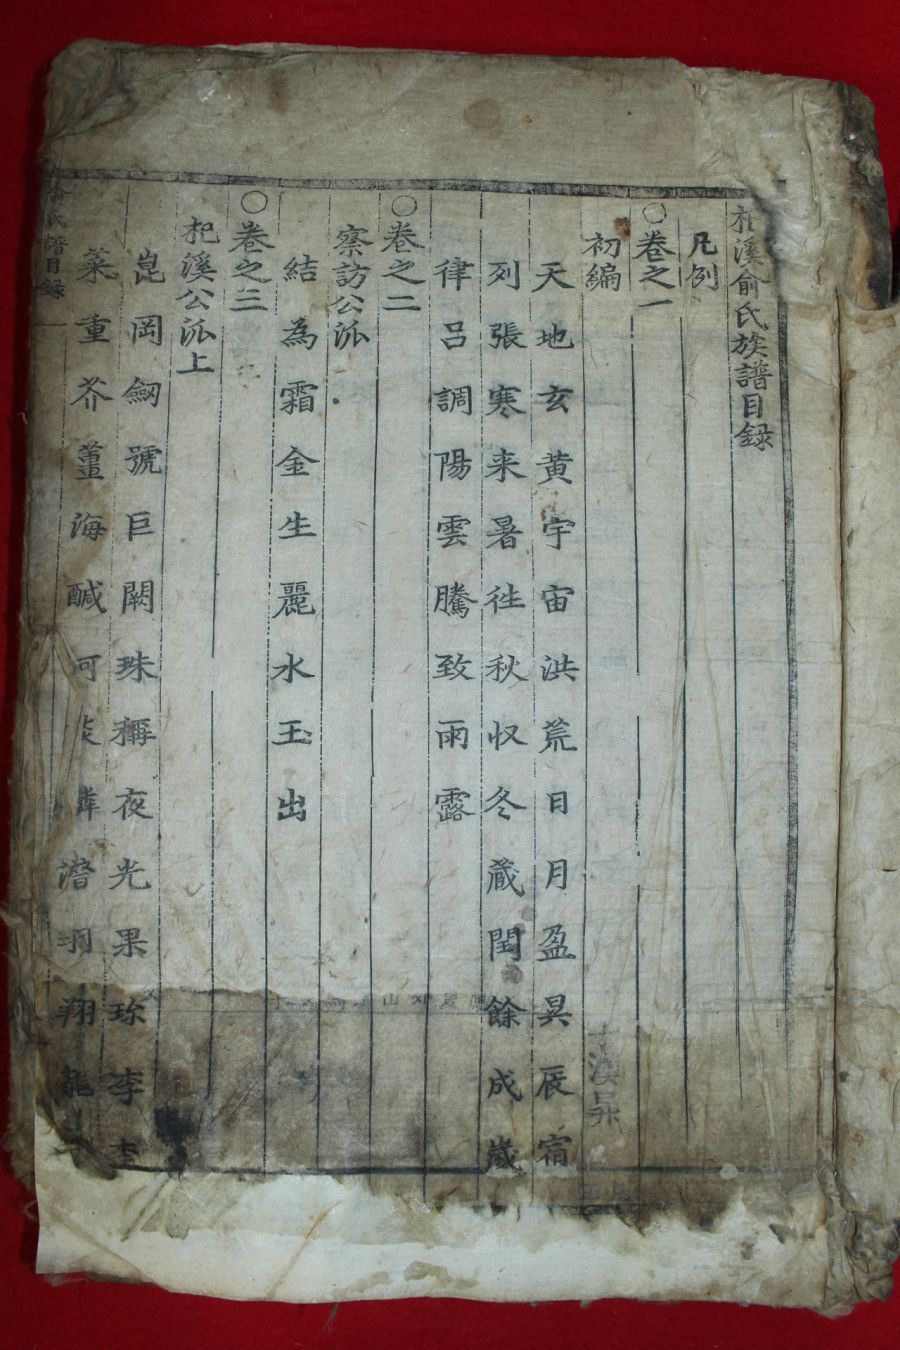 杞溪俞氏族譜目録
凡例
○卷之一
初編
天地玄黃宇宙洪荒日月盈昃辰宿
列張寒来暑徃秋収冬蔵閏餘成歲
律呂調陽雲騰致雨露
○卷之二
察訪公派
結為霜金生麗水玉出
○卷之三
杞溪公派上
崑岡劒號巨闕珠稱夜光果珎李
菜重芥薑海醎河鱗潛羽翔龍
俞氏譜目録 一